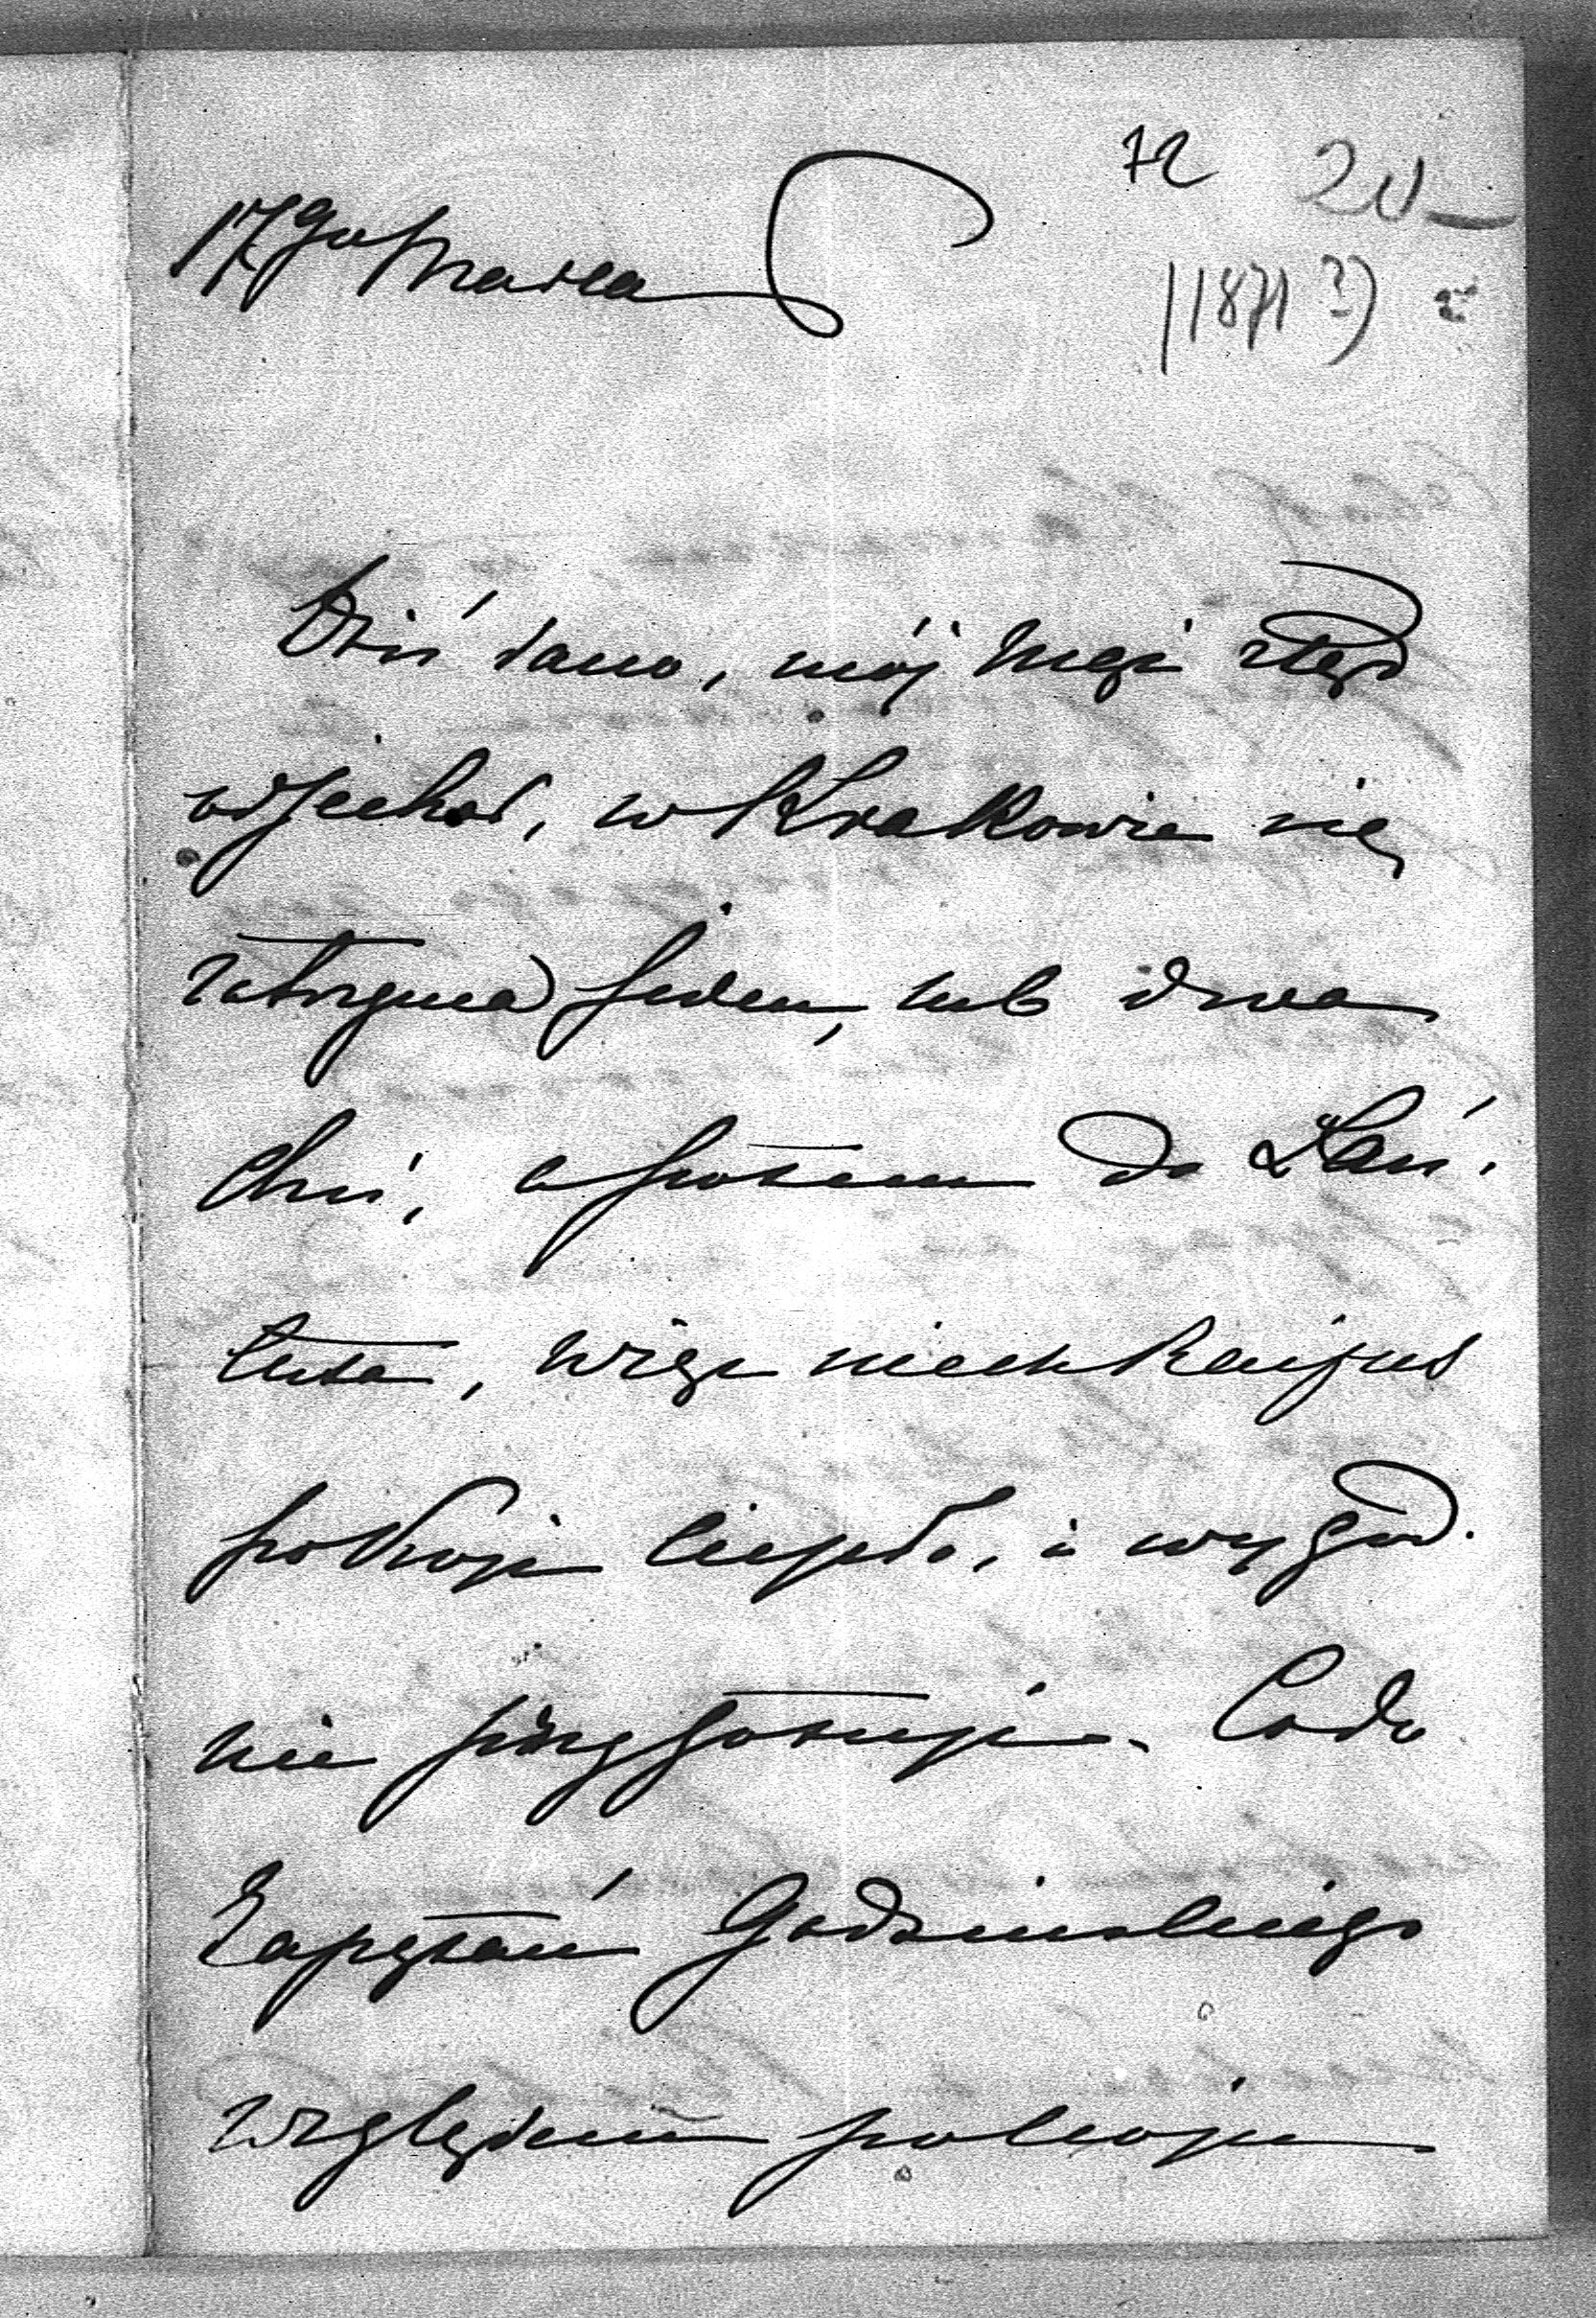 72 20
17go Marca
(1871?)
Dziś rano, mój Mąż ztąd
odjechał, w Krakowie się
zatrzyma jeden, lub dwa
dni, a potem do Łań-
cuta, więc niech Panjus
pokoje ciepło, i wygod-
nie przygotuje. Co do
Zapytań Godzinskiego
względem pokoju